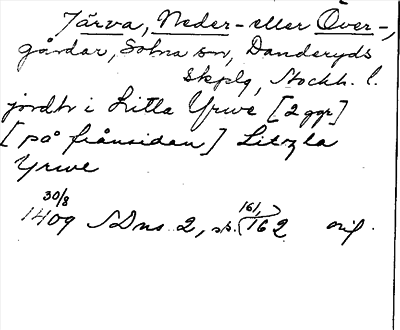 Järva, Neder- eller Över-,
gårdar, Solna sn, Danderyds
skplg, Stockh. l.
jordtr i Litla Yrwe [2 ggr]
[på frånsidan] Litzla
Yrwe
30/8
1409 SDns 2, s. 161, 162 orig.